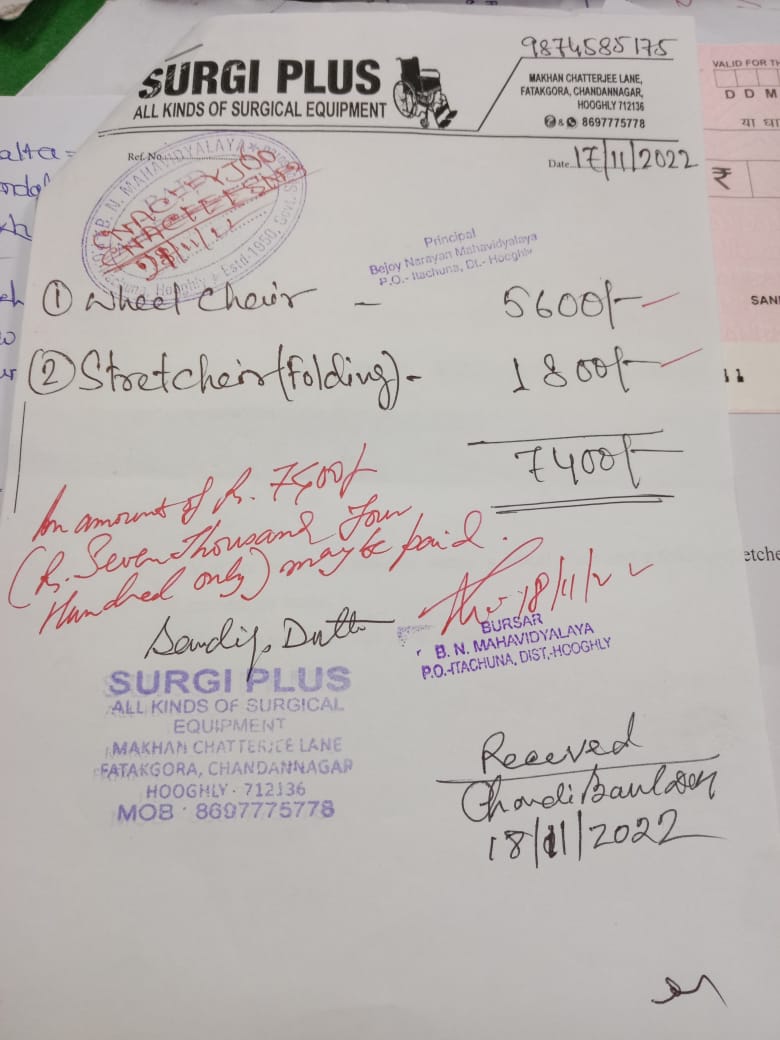 9874585175
SURGI PLUS
ALL KINDS OF SURGICAL EQUIPMENT
MAKHAN CHATTERJEE LANE,
FATAKGORA, CHANDANNAGAR,
HOOGHLY 712136
& 8697775778
Ref. No.
Date. 17/11/2022
B. N. MAHAVIDYALAYA
Itachuna, Hooghly * Estd-1950, Govt.
Principal
Bejoy Narayan Mahavidyalaya
P.O.- Itachuna, Dt.- Hooghly
① Wheel Chair - 5600/-
② Stretcheir (Folding) - 1800/-
7400/-
An amount of Rs. 7400/-
(Rs. Seven Thousand Four
Hundred only) may be paid.
18/11/22
BURSAR
B. N. MAHAVIDYALAYA
P.O.-ITACHUNA, DIST.-HOOGHLY
Sandip Dutta
SURGI PLUS
ALL KINDS OF SURGICAL
EQUIPMENT
MAKHAN CHATTERJEE LANE
FATAKGORA, CHANDANNAGAR
HOOGHLY - 712136
MOB : 8697775778
Receved
18/11/2022
VALID FOR TH
D D M
या धा
₹
SAN
etche